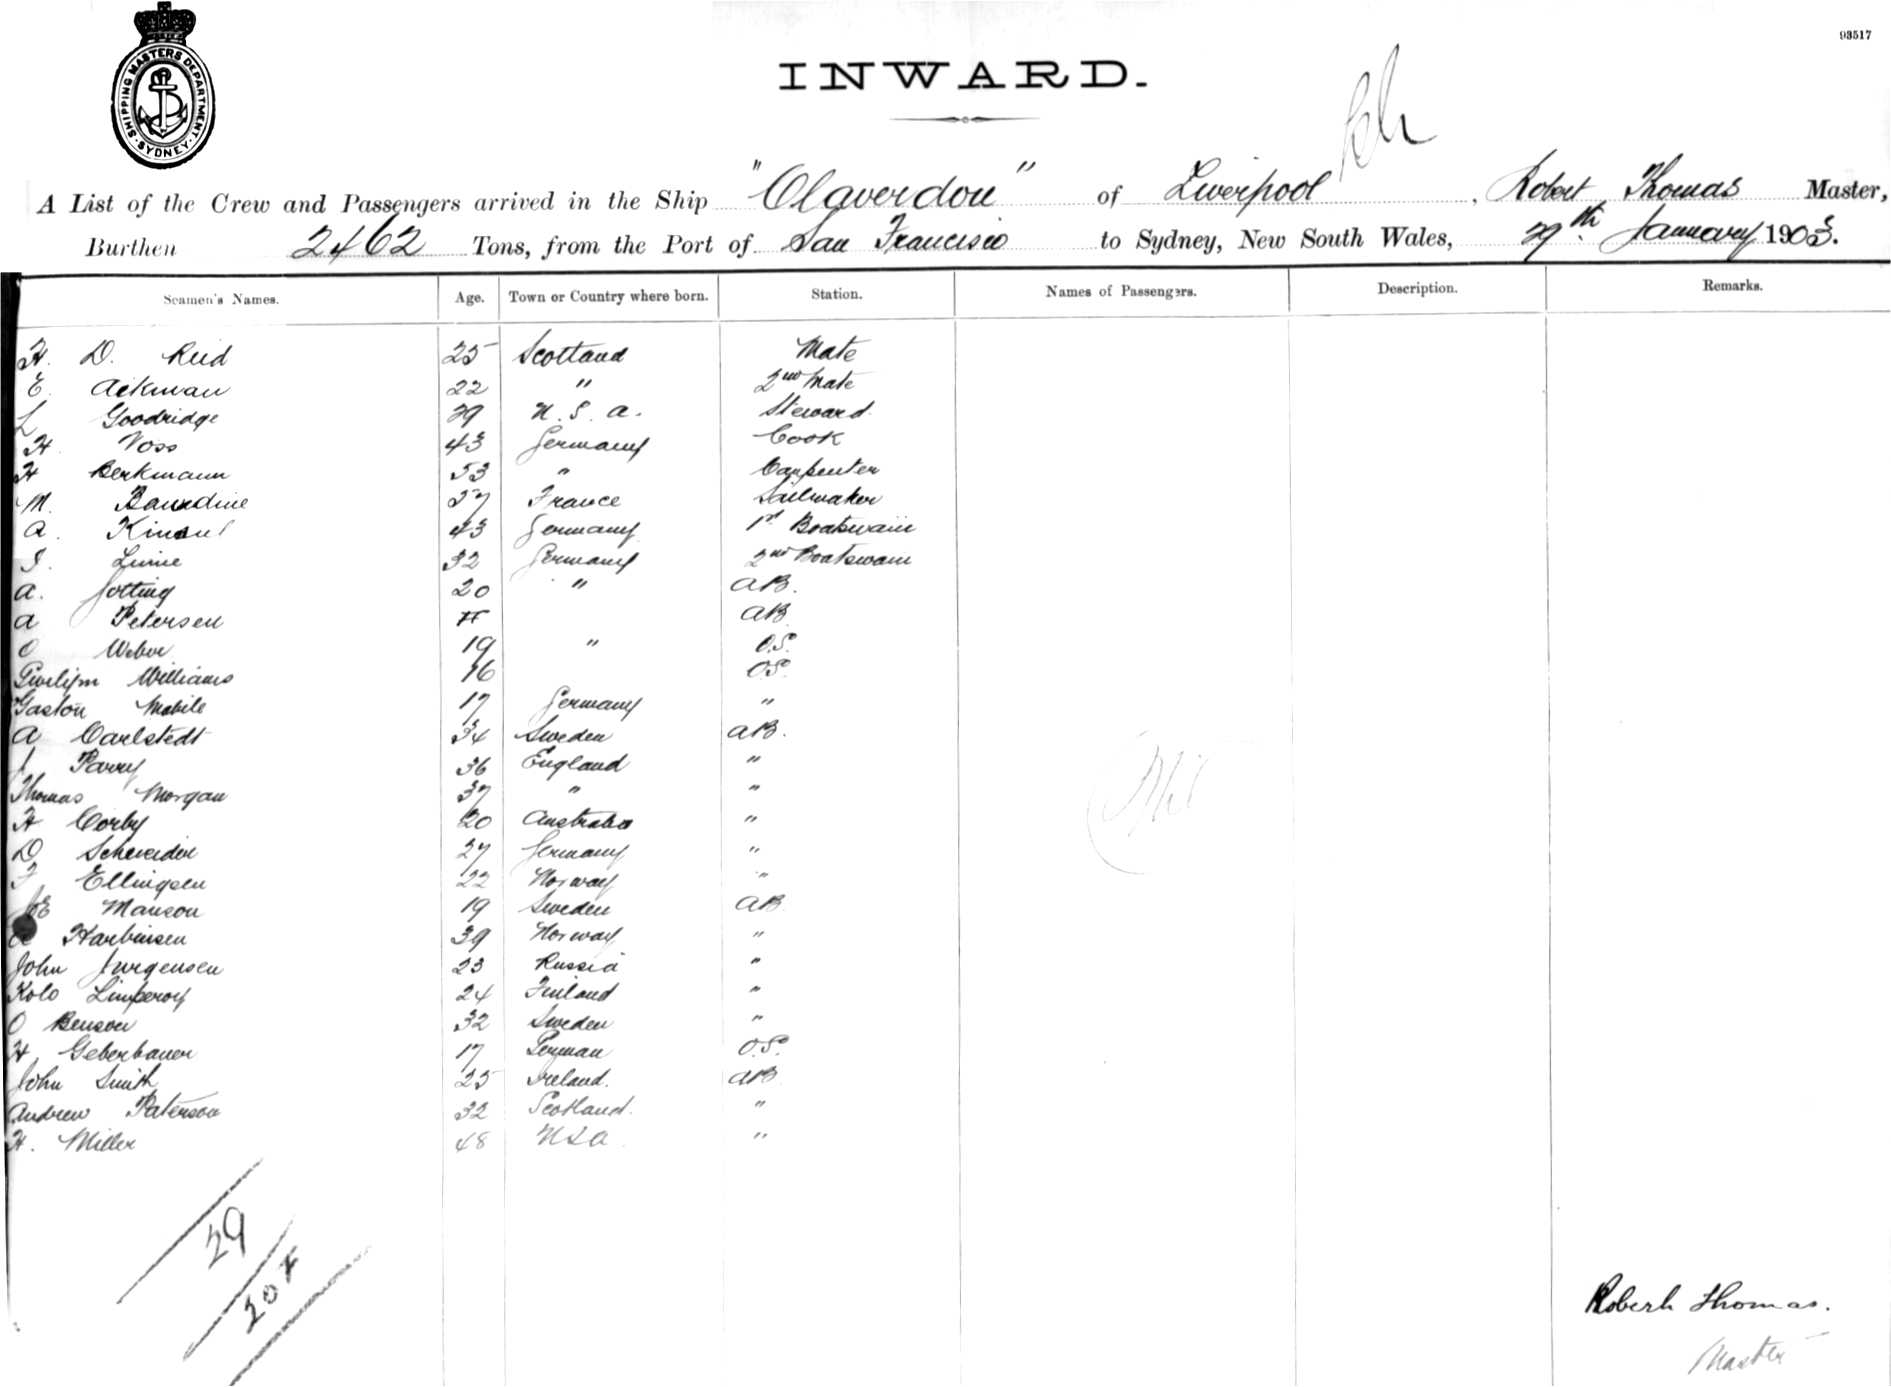 93517
SHIPPING MASTERS DEPARTMENT. SYDNEY
INWARD.
A List of the Crew and Passengers arrived in the Ship "Claverdon" of Liverpool, Robert Thomas Master,
Burthen 2462 Tons, from the Port of San Francisco to Sydney, New South Wales, 29th January 1903.
Seamen's Names. Age. Town or Country where born. Station. Names of Passengers. Description. Remarks.
H. D. Reid 25 Scotland Mate
E. Aikman 22 " 2nd Mate
L Goodridge 29 U. S. A. Steward
H. Voss 43 Germany Cook
H Berkmann 53 " Carpenter
M. 57 France Sailmaker
A. 43 Germany 1st Boatswain
32 Germany 2nd Boatswain
A. Jotting 20 " AB.
A Petersen AB
O Weber 19 " O.S.
Gwilym Williams 16 OS.
Gaston Mabile 17 Germany "
A Carlstedt 34 Sweden AB.
J Parry 36 England "
Thomas Morgan 37 " "
H Corby 20 Australia "
D Schneider 27 Germany "
F Ellingsen 22 Norway "
Manson 19 Sweden AB
Harbinsen 39 Norway "
John Jurgensen 23 Russia "
Kolo Limperoy 24 Finland "
O Benson 32 Sweden "
H. Geberbauer 17 German O.S.
John Smith 25 Ireland. AB
Andrew Paterson 32 Scotland. "
H. Miller 48 USA "
Nil
29
Robert Thomas.
Master